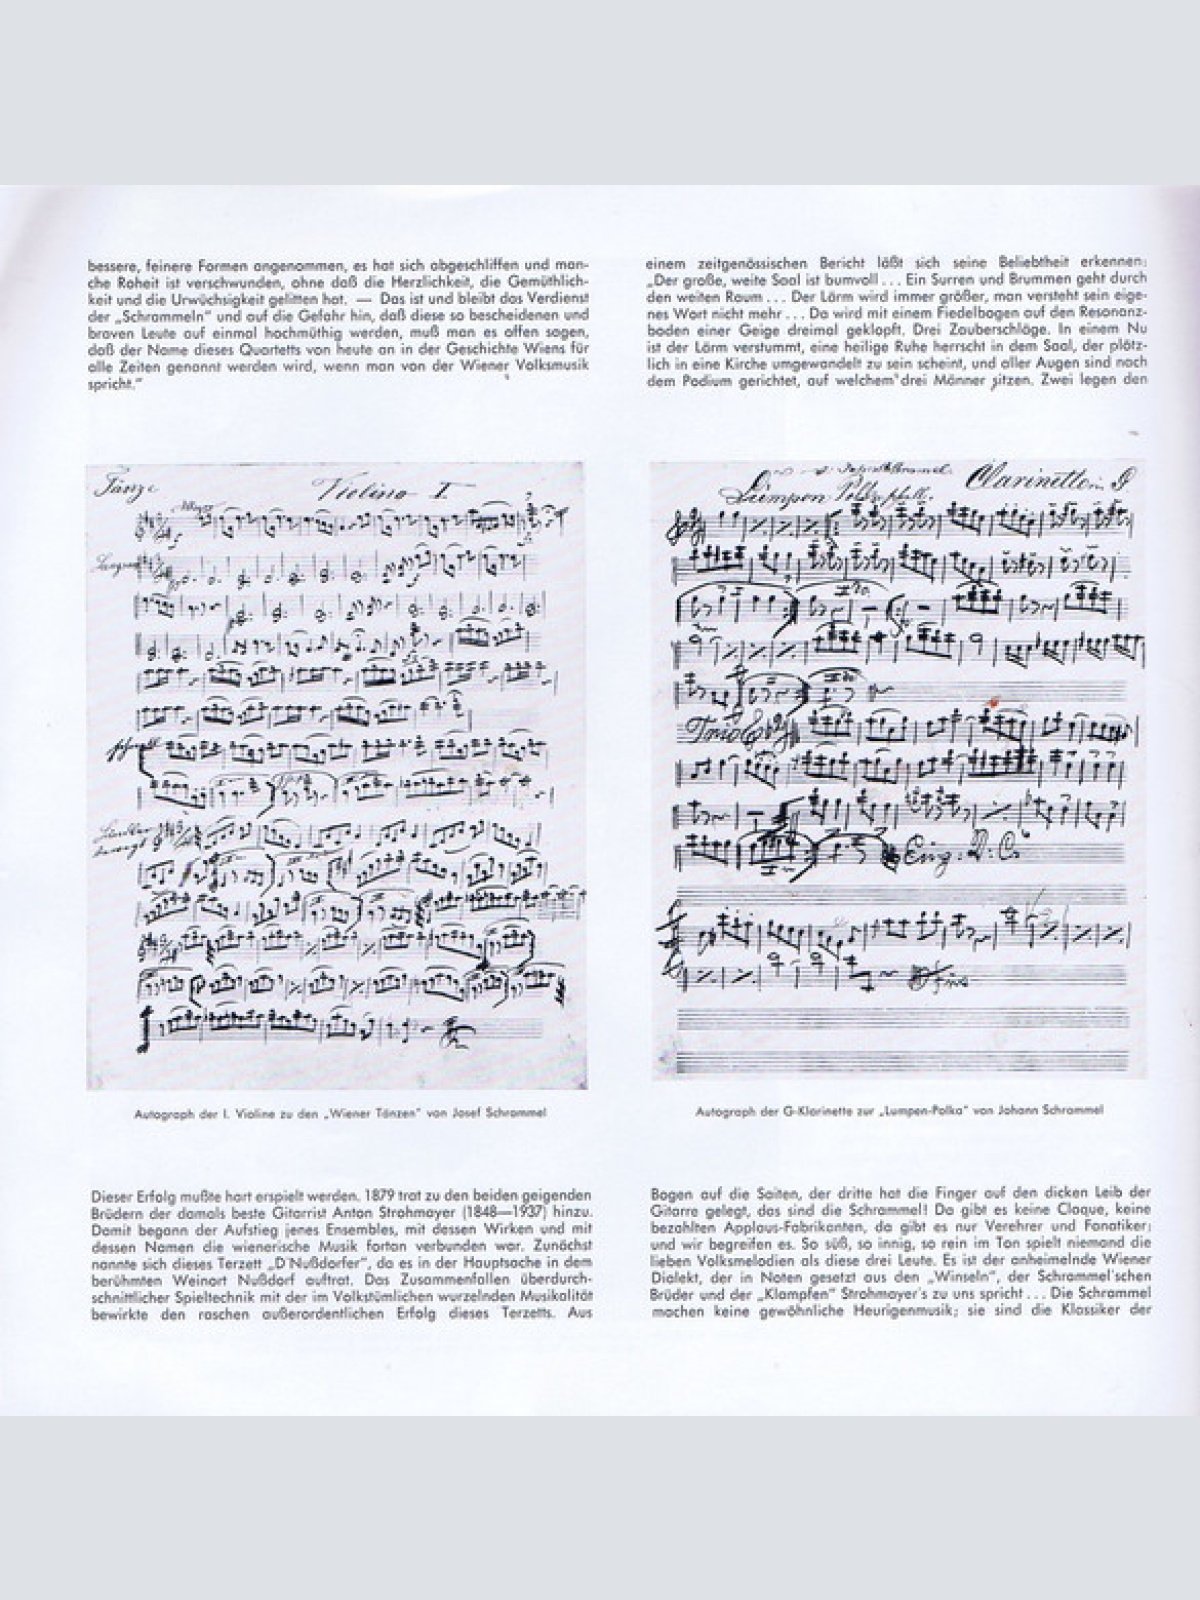 bessere, feinere Formen angenommen, es hat sich abgeschliffen und man-
che Roheit ist verschwunden, ohne daß die Herzlichkeit, die Gemüthlich-
keit und die Urwüchsigkeit gelitten hat. — Das ist und bleibt das Verdienst
der „Schrammeln" und auf die Gefahr hin, daß diese so bescheidenen und
braven Leute auf einmal hochmüthig werden, muß man es offen sagen,
daß der Name dieses Quartetts von heute an in der Geschichte Wiens für
alle Zeiten genannt werden wird, wenn man von der Wiener Volksmusik
spricht."
Tänze
Violino I
Autograph der I. Violine zu den „Wiener Tänzen" von Josef Schrammel
Dieser Erfolg mußte hart erspielt werden. 1879 trat zu den beiden geigenden
Brüdern der damals beste Gitarrist Anton Strohmayer (1848—1937) hinzu.
Damit begann der Aufstieg jenes Ensembles, mit dessen Wirken und mit
dessen Namen die wienerische Musik fortan verbunden war. Zunächst
nannte sich dieses Terzett „D'Nußdorfer", da es in der Hauptsache in dem
berühmten Weinort Nußdorf auftrat. Das Zusammenfallen überdurch-
schnittlicher Spieltechnik mit der im Volkstümlichen wurzelnden Musikalität
bewirkte den raschen außerordentlichen Erfolg dieses Terzetts. Aus
einem zeitgenössischen Bericht läßt sich seine Beliebtheit erkennen:
„Der große, weite Saal ist bumvoll . . . Ein Surren und Brummen geht durch
den weiten Raum . . . Der Lärm wird immer größer, man versteht sein eige-
nes Wort nicht mehr . . . Da wird mit einem Fiedelbogen auf den Resonanz-
boden einer Geige dreimal geklopft. Drei Zauberschläge. In einem Nu
ist der Lärm verstummt, eine heilige Ruhe herrscht in dem Saal, der plötz-
lich in eine Kirche umgewandelt zu sein scheint, und aller Augen sind nach
dem Podium gerichtet, auf welchem drei Männer sitzen. Zwei legen den
Clarinetto in G
Lumpen Polka
Trio
D. C.
Autograph der G-Klarinette zur „Lumpen-Polka" von Johann Schrammel
Bogen auf die Saiten, der dritte hat die Finger auf den dicken Leib der
Gitarre gelegt, das sind die Schrammel! Da gibt es keine Claque, keine
bezahlten Applaus-Fabrikanten, da gibt es nur Verehrer und Fanatiker;
und wir begreifen es. So süß, so innig, so rein im Ton spielt niemand die
lieben Volksmelodien als diese drei Leute. Es ist der anheimelnde Wiener
Dialekt, der in Noten gesetzt aus den „Winseln", der Schrammel'schen
Brüder und der „Klampfen" Strohmayer's zu uns spricht . . . Die Schrammel
machen keine gewöhnliche Heurigenmusik; sie sind die Klassiker der